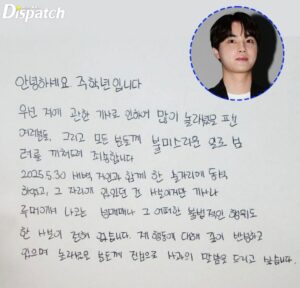 Dispatch
안녕하세요 주학년입니다
우선 저에 관한 기사로 인하여 많이 놀라셨을 팬
여러분, 그리고 모든 분들께 불미스러운 일로 심
려를 끼쳐드려 죄송합니다
2025.5.30 새벽 지인과 함께 한 술자리에 동석
하였고, 그 자리에 있었던 건 사실이지만 기사나
루머에서 나오는 성매매나 그 어떠한 불법적인 행위도
한 사실이 전혀 없습니다. 제 행동에 대해 깊이 반성하고
있으며 놀라셨을 분들께 진심으로 사과의 말씀을 드리고 싶습니다.